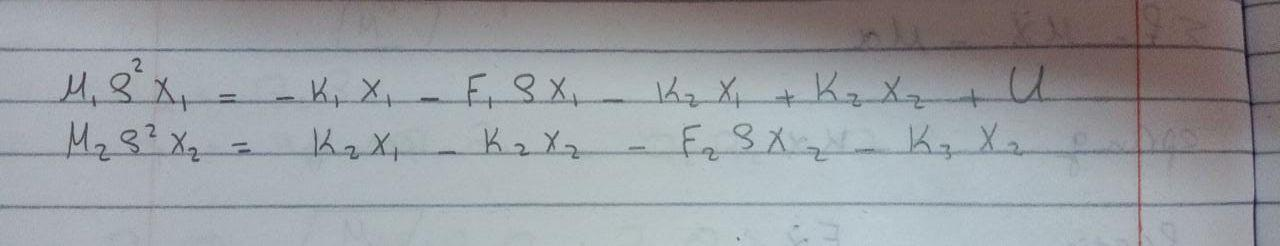 M₁S²X₁ = -K₁X₁ - F₁SX₁ - K₂X₁ + K₂X₂ + U
M₂S²X₂ = K₂X₁ - K₂X₂ - F₂SX₂ - K₃X₂